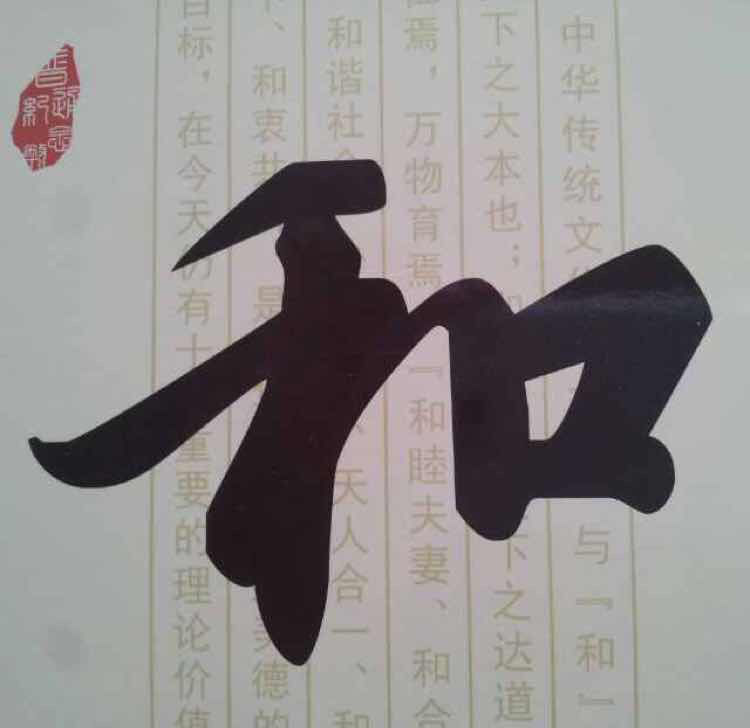 和
中华传统文 与『和』
下之大本也； 下之达道
焉，万物育焉 『和睦夫妻、和合
和谐社会 、天人合一、和
、和衷共 是 美德的
目标，在今天仍有十 重要的理论价值